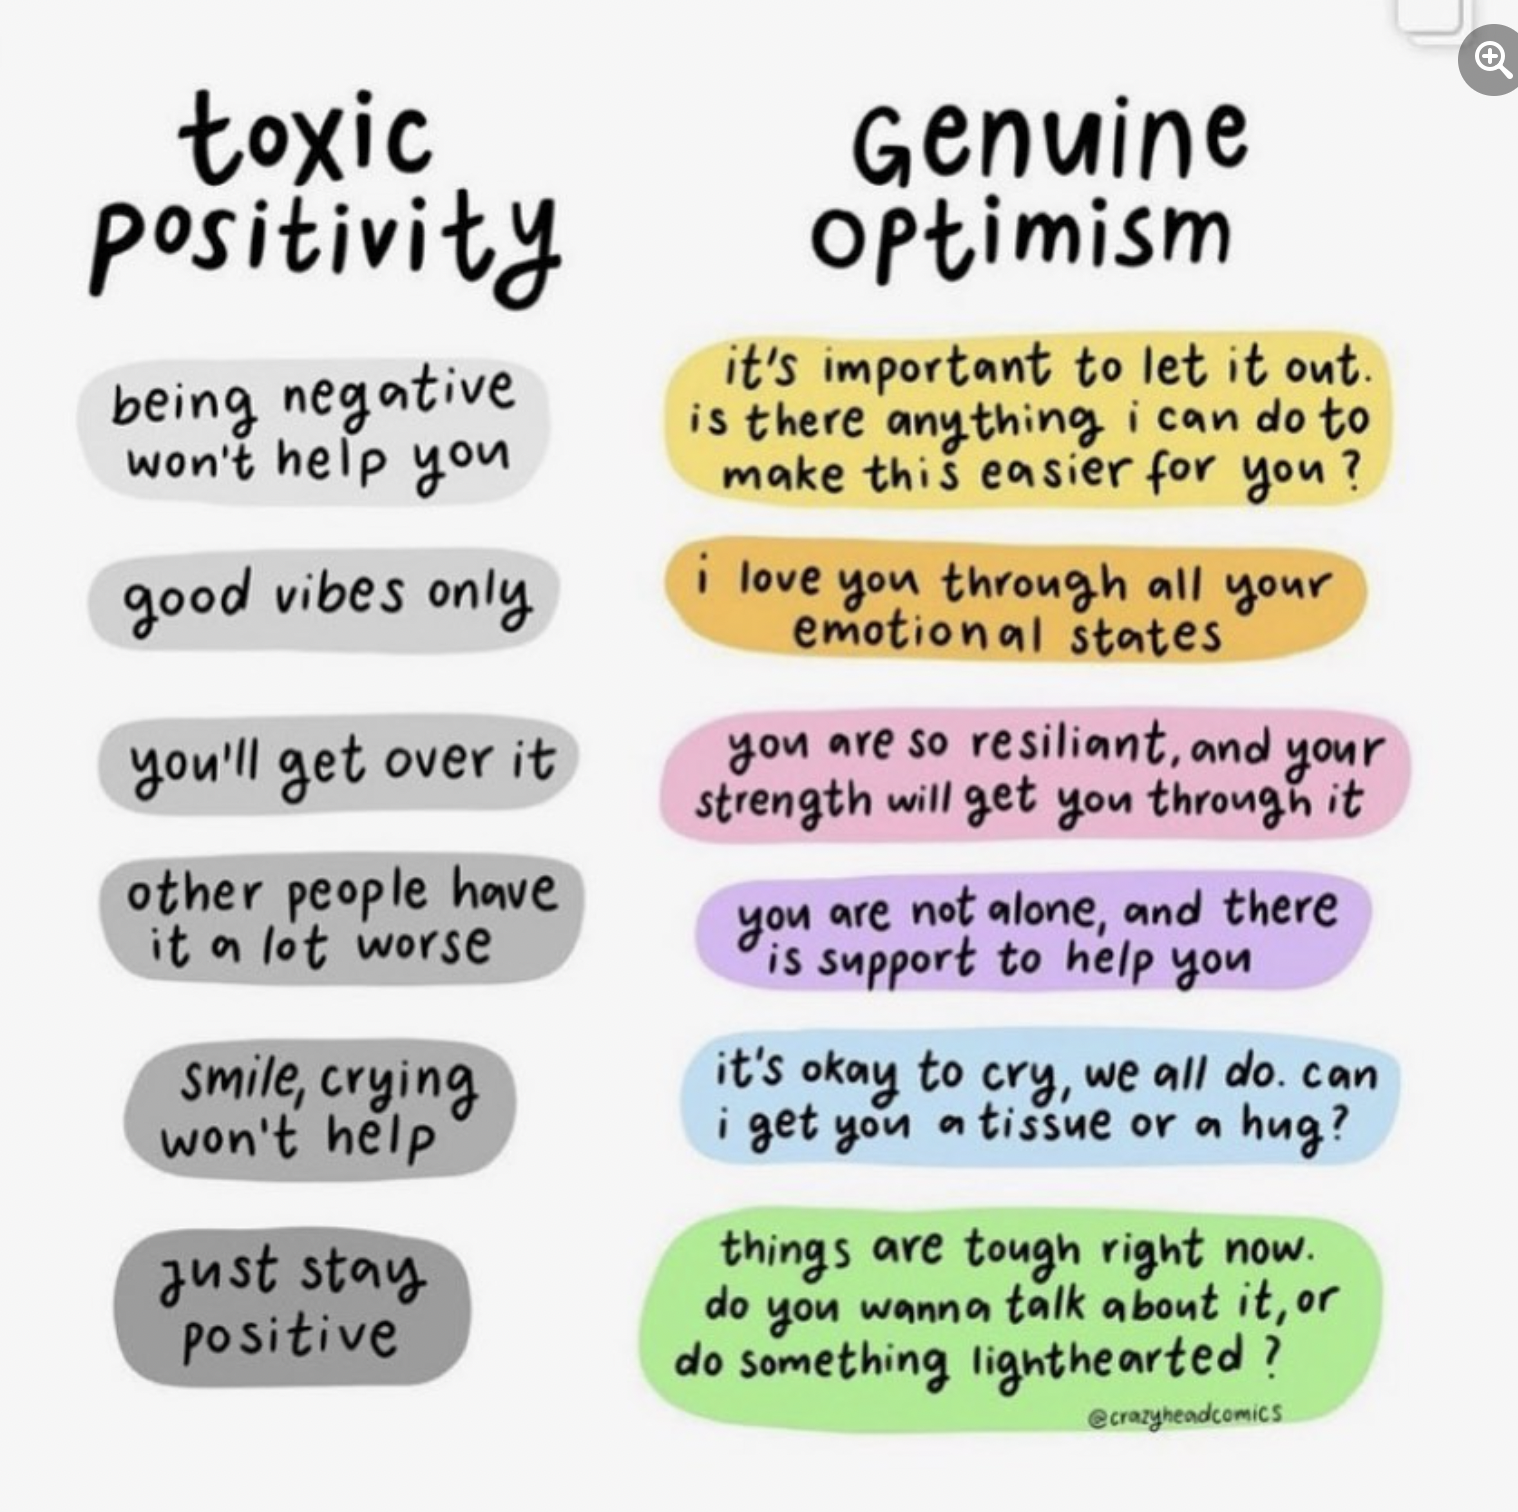 toxic
positivity
being negative
won't help you
good vibes only
you'll get over it
other people have
it a lot worse
smile, crying
won't help
just stay
positive
Genuine
optimism
it's important to let it out.
is there anything i can do to
make this easier for you?
i love you through all your
emotional states
you are so resiliant, and your
strength will get you through it
you are not alone, and there
is support to help you
it's okay to cry, we all do. can
i get you a tissue or a hug?
things are tough right now.
do you wanna talk about it, or
do something lighthearted?
@crazyheadcomics